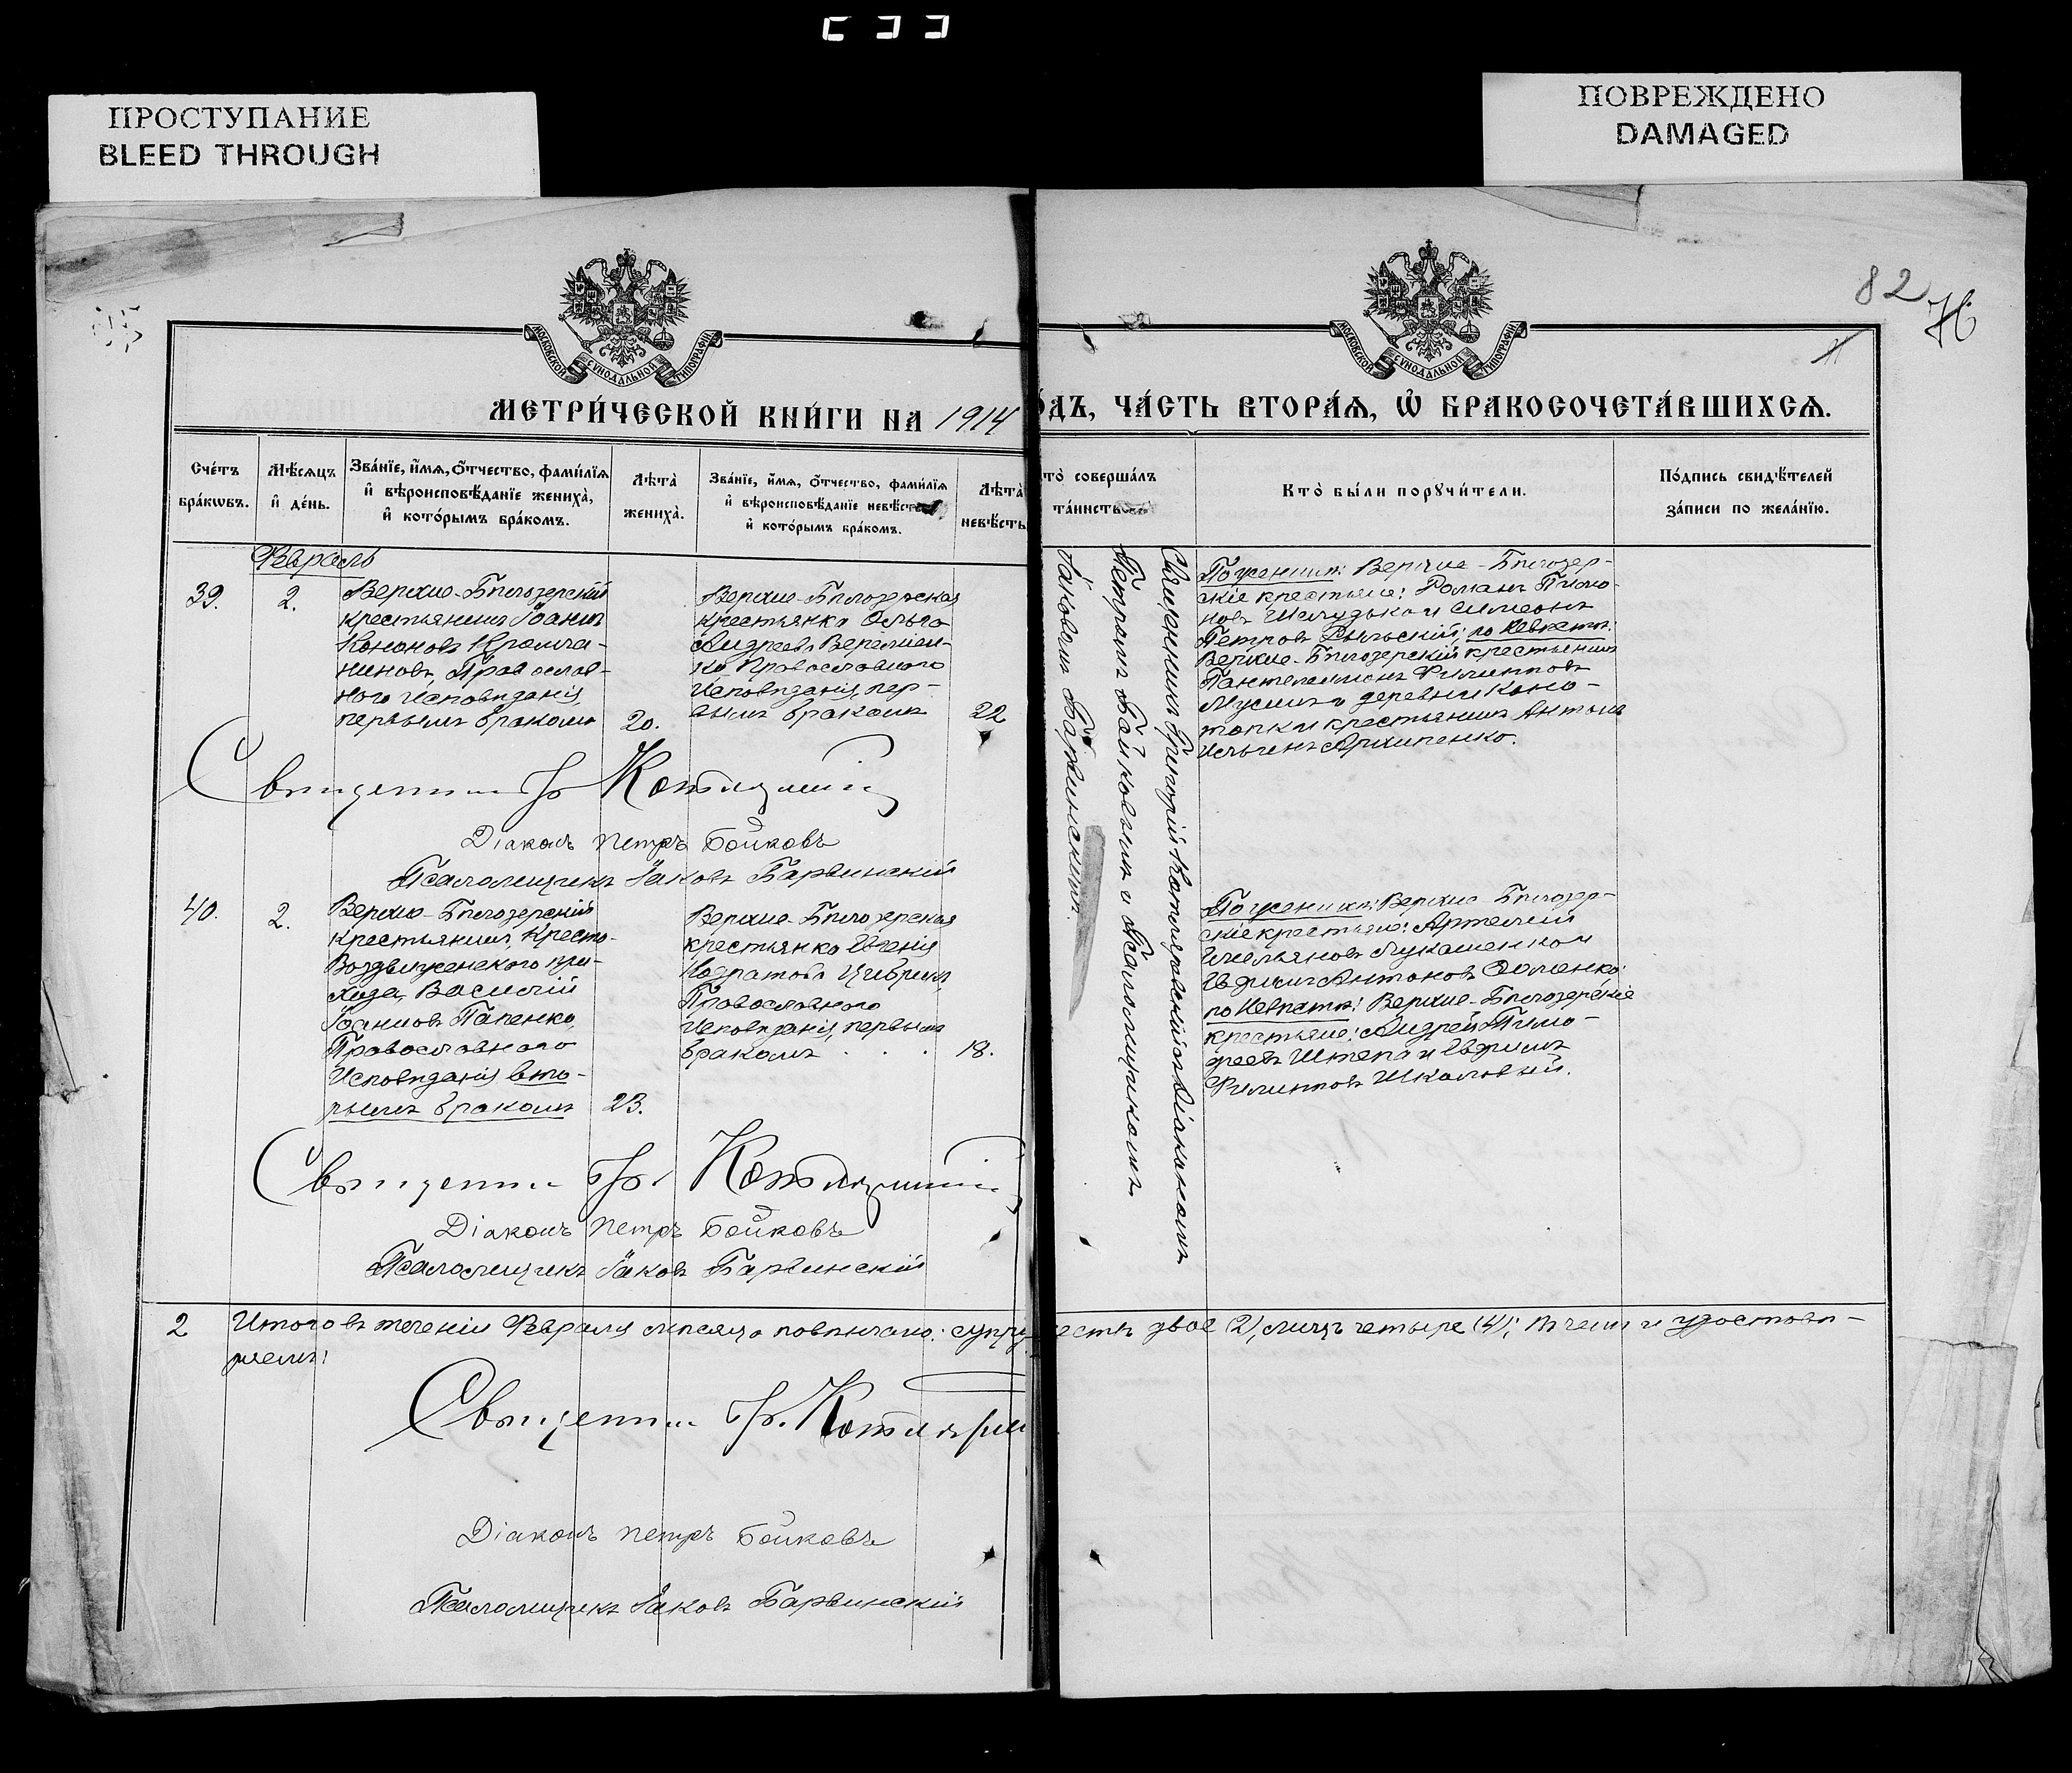 ПРОСТУПАНИЕ
BLEED THROUGH
ПОВРЕЖДЕНО
DAMAGED
82
МОСКОВСКОЙ СѴНОДАЛЬНОЙ ТИПОГРАФІИ
МОСКОВСКОЙ СѴНОДАЛЬНОЙ ТИПОГРАФІИ
МЕТРИ́ЧЕСКОЙ КНИ́ГИ НА 1914
О́ДЪ, ЧА́СТЬ ВТОРА́Ѧ, Ѽ БРАКОСОЧЕТА́ВШИХСѦ.
Сче́тъ
бра́кѡвъ.
Мѣ́сѧцъ
и҆ де́нь.
Зва́нїе, и҆́мѧ, ѻ҆́тчество, фами́лїѧ
и҆ вѣроисповѣ́данїе жениха̀,
и҆ кото́рымъ бра́комъ.
Лѣта̀
жениха̀.
Зва́нїе, и҆́мѧ, ѻ҆́тчество, фами́лїѧ
и҆ вѣроисповѣ́данїе невѣ́сты,
и҆ кото́рымъ бра́комъ.
Лѣта̀
невѣ́сты
то̀ соверша́лъ
та́инство
Кто̀ бы́ли порꙋчи́тели.
По́дпись свидѣ́телей
за́писи по жела́нїю.
Февраль
39.
2.
Верхне-Бѣлозерскій
крестьянинъ Іоаннъ
Кононовъ Крамча-
ниновъ, Православ-
ного Исповѣданія,
первымъ бракомъ
20.
Верхне-Бѣлозерская
крестьянка Ольга
Андреева Веремѣен-
ко Православного
Исповѣданія, пер-
вымъ бракомъ
22
Священникъ Григорій Котляревскій съ Діакономъ
Петромъ Бойковымъ и Псаломщикомъ
Іаковомъ Барвинскимъ.
По женихѣ: Верхне-Бѣлозер-
скіе крестьяне: Романъ Тимо-
новъ Шелудько и Симеонъ
Петровъ Рыльскій; по Невѣстѣ:
Верхне-Бѣлозерскій крестьянинъ
Пантелеимонъ Филипповъ
Мусіи и деревни Коно-
топки крестьянинъ Антонъ
Ильинъ Архипенко.
Священникъ Гр Котляревскій
Діаконъ Петръ Бойковъ
Псаломщикъ Іаковъ Барвинскій
40.
2.
Верхне-Бѣлозерскій
крестьянинъ, Кресто-
Воздвиженского при-
хода, Василій
Іоанновъ Папенко,
Православного
Исповѣданія вто-
рымъ бракомъ
23.
Верхне-Бѣлозерская
крестьянка Евгенія
Кодратова Цибуля,
Православного
Исповѣданія, первымъ
бракомъ . . .
18.
По женихѣ: Верхне-Бѣлозер-
скіе крестьяне: Артемій
Емельяновъ Лукашенко и
Ефимъ Антоновъ Фоменко:
по Невѣстѣ: Верхне-Бѣлозерскіе
крестьяне: Андрей Тимо-
феевъ Штепа и Ефимъ
Филиповъ Школовый.
Священникъ Гр. Котляревскій
Діаконъ Петръ Бойковъ
Псаломщикъ Іаковъ Барвинскій
2
Итого въ теченіи Февраля мѣсяца повѣнчано: супру
ествъ двое (2), лицъ четыре (4); въ чемъ и удостовѣ-
ряемъ:
Священникъ Гр. Котляревс
Діаконъ Петръ Бойковъ
Псаломщикъ Іаковъ Барвинскій